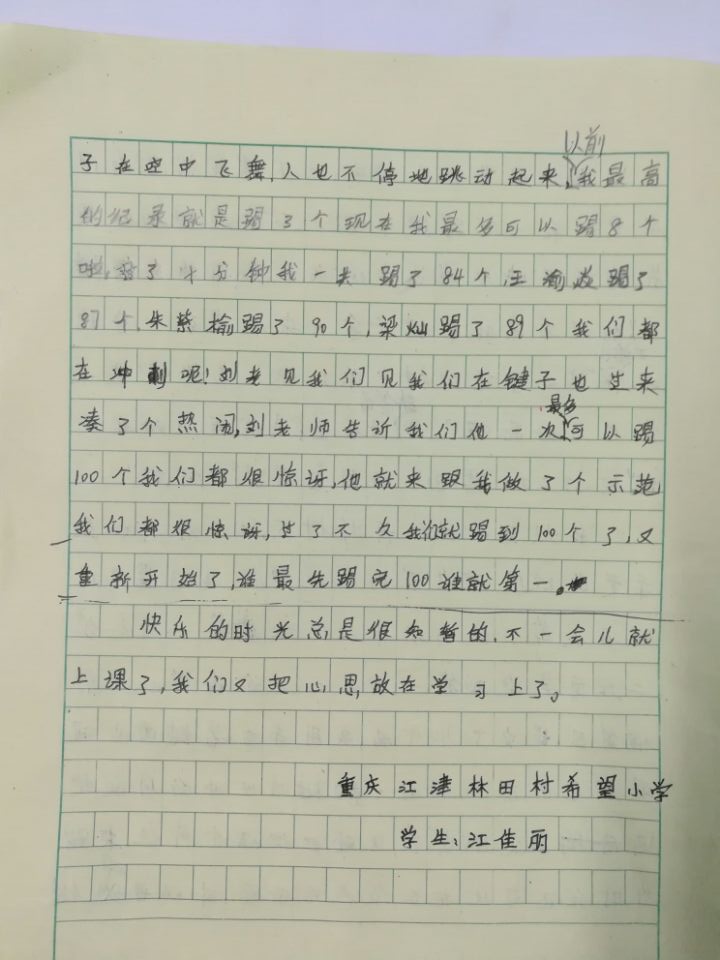 以前
子在空中飞舞,人也不停地跳动起来,我最高
的纪录就是踢3个现在我最多可以踢8个
啦,踢了十分钟我一共踢了84个,王渝踢了
87个,朱紫榆踢了90个,梁灿踢了89个我们都
在冲刺呢!刘老见我们见我们在键子也过来
最多
凑了个热闹,刘老师告诉我们他一次可以踢
100个我们都很惊讶,他就来跟我做了个示范
我们都很惊讶,过了不久我们就踢到100个了,又
重新开始了,谁最先踢完100谁就第一。
快乐的时光总是很知暂的,不一会儿就
上课了,我们又把心思放在学习上了。
重庆江津林田村希望小学
学生:江佳丽